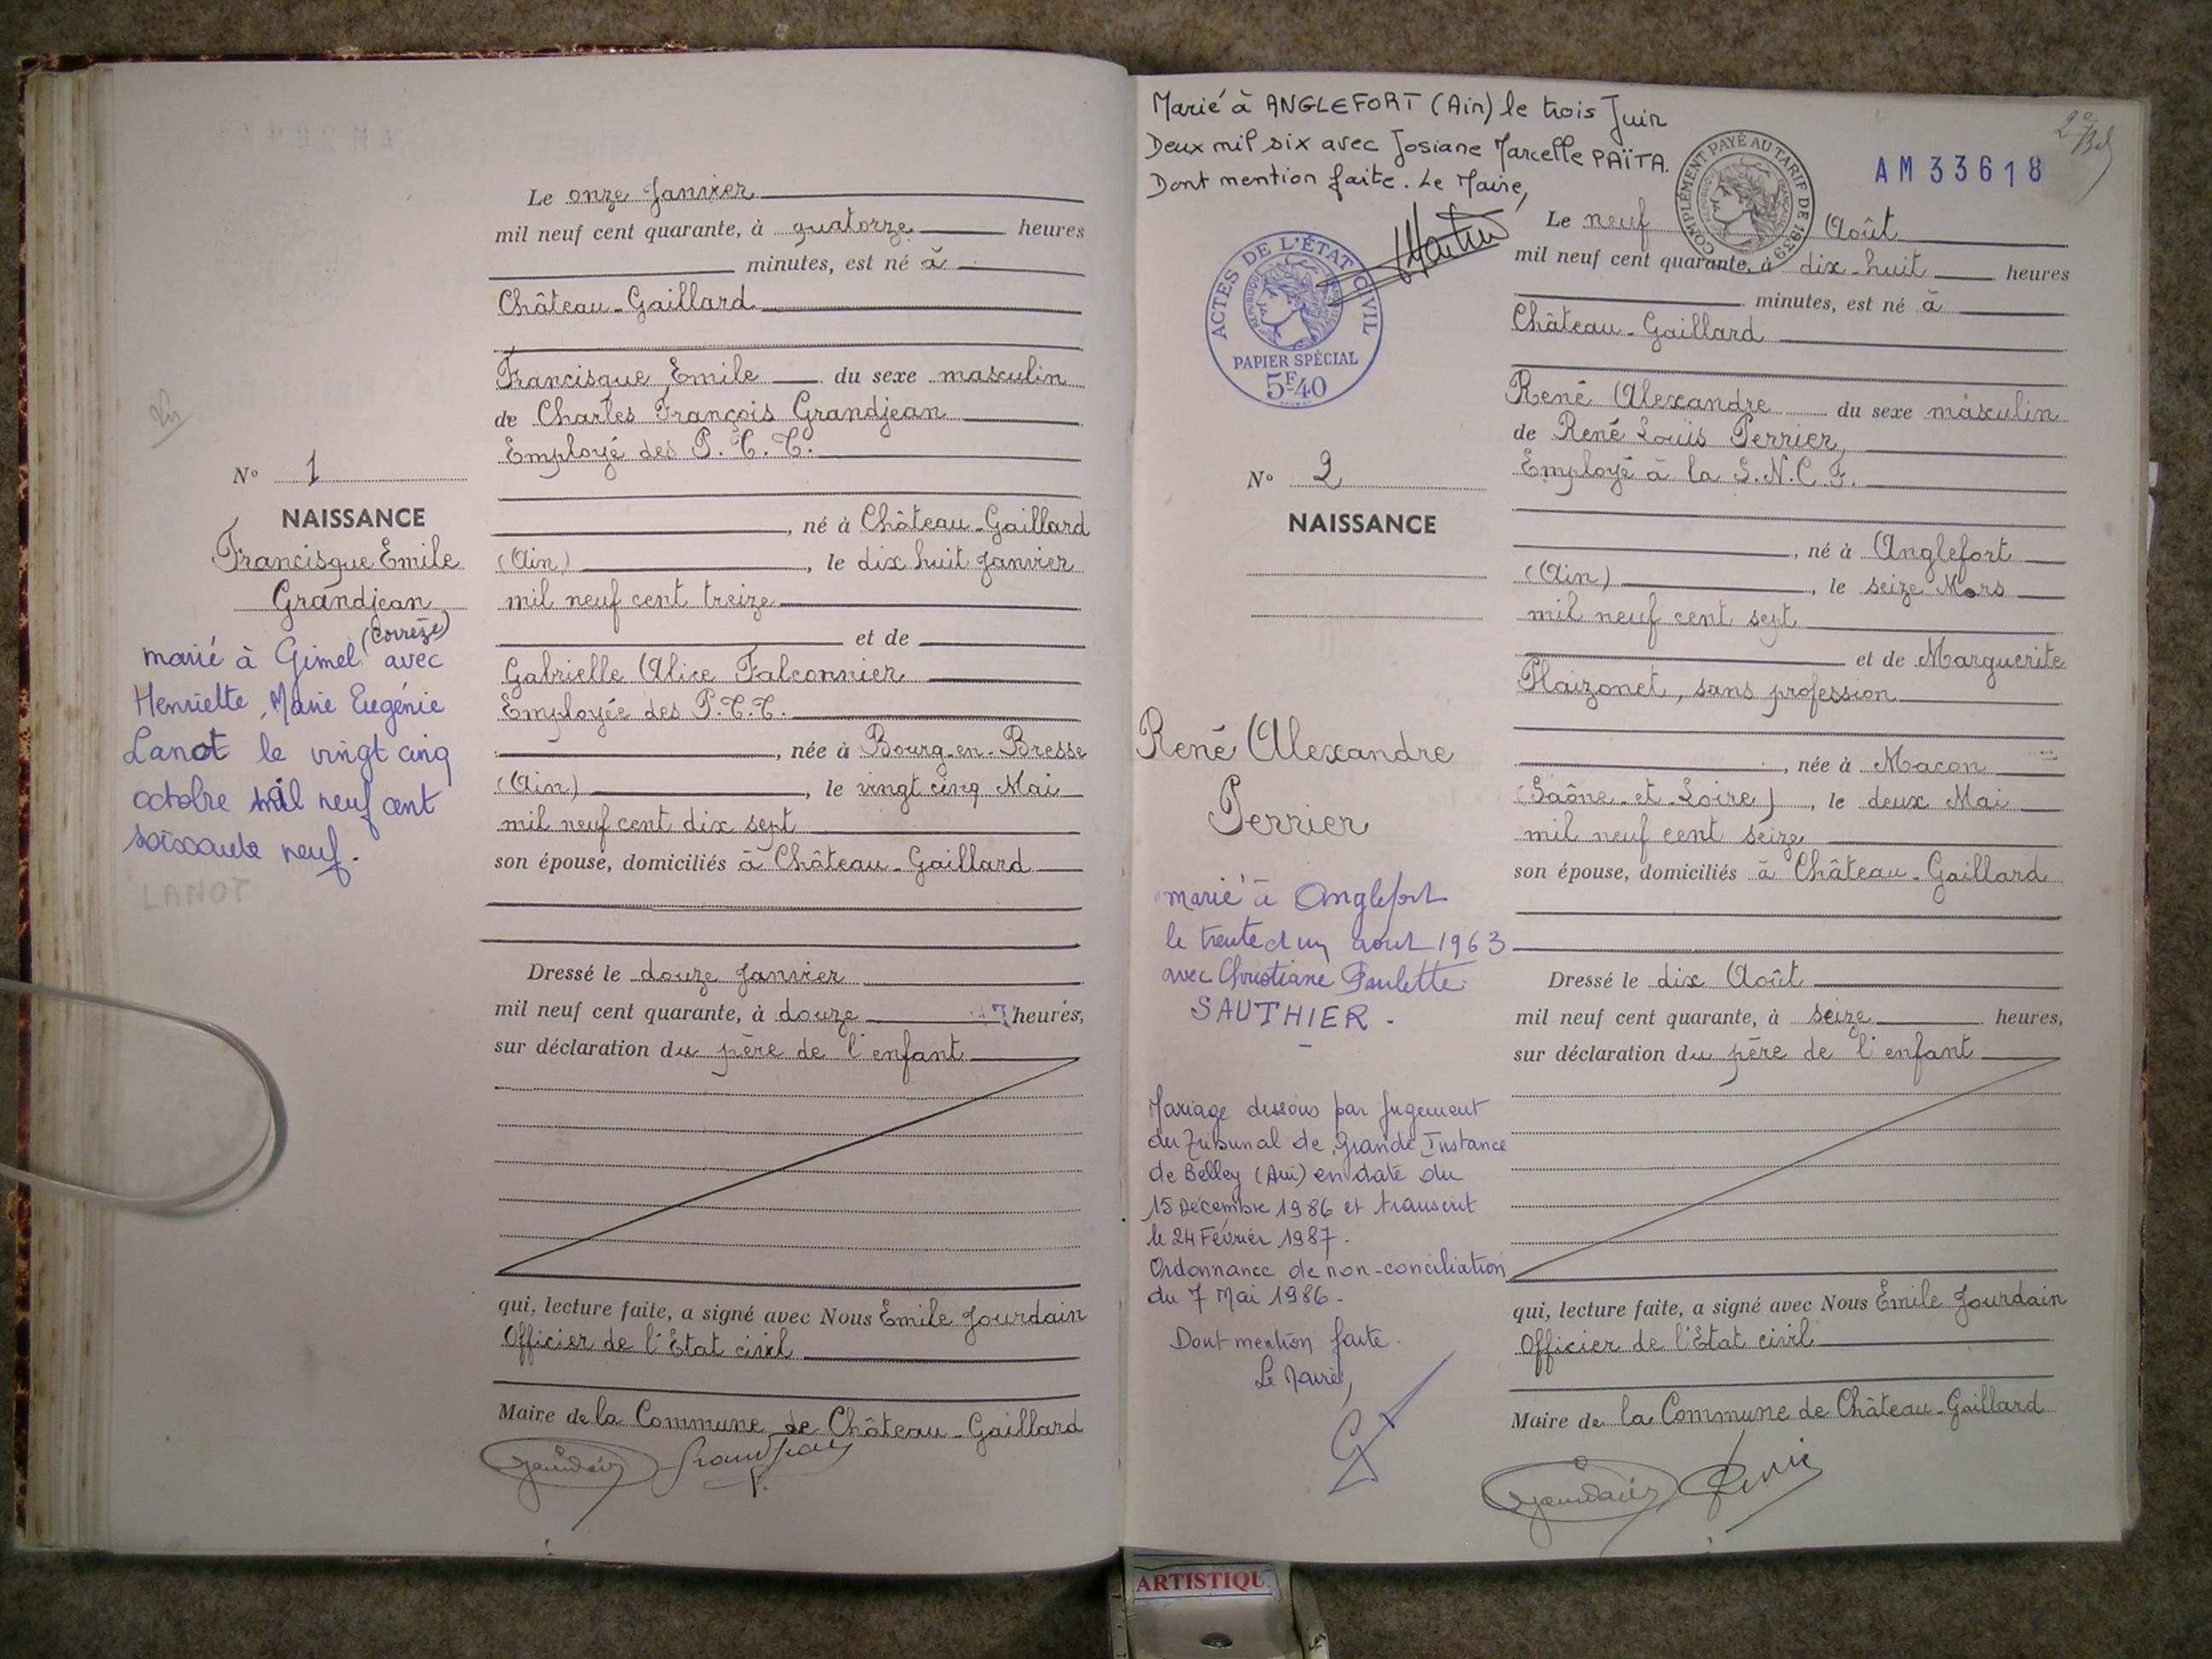 Le onze Janvier
mil neuf cent quarante, à quatorze heures
minutes, est né à
Château-Gaillard
Francisque Emile du sexe masculin
de Charles François Grandjean
Employé des P.T.T.
né à Château-Gaillard
(Ain), le dix huit Janvier
mil neuf cent treize
et de
Gabrielle Alice Falconnier
Employée des P.T.T.
, née à Bourg-en-Bresse
(Ain), le vingt cinq Mai
mil neuf cent dix sept
son épouse, domiciliés à Château-Gaillard
Dressé le douze Janvier
mil neuf cent quarante, à douze heures,
sur déclaration du père de l'enfant
qui, lecture faite, a signé avec Nous Emile Jourdain
Officier de l'Etat civil
Maire de la Commune de Château-Gaillard
N° 1
NAISSANCE
Francisque Emile
Grandjean
(Corrèze)
marié à Gimel avec
Henriette, Marie Eugénie
Lanot le vingt cinq
octobre mil neuf cent
soixante neuf.
LANOT
Marié à ANGLEFORT (Ain) le trois Juin
Deux mil six avec Josiane Marcelle PAÏTA.
Dont mention faite. Le Maire,
ACTES DE L'ÉTAT CIVIL
RÉPUBLIQUE FRANÇAISE
PAPIER SPÉCIAL
5F40
N° 2
NAISSANCE
René Alexandre
Perrier
marié à Anglefort
le trente et un août 1963
avec Christiane Paulette
SAUTHIER -
Mariage dissous par Jugement
du Tribunal de Grande Instance
de Belley (Ain) en date du
15 Décembre 1986 et transcrit
le 24 Février 1987.
Ordonnance de non-conciliation
du 7 Mai 1986.
Dont mention faite.
Le Maire,
COMPLÉMENT PAYÉ AU TARIF DE 1939
AM33618
Le neuf Août
mil neuf cent quarante, à dix-huit heures
minutes, est né à
Château-Gaillard
René Alexandre du sexe masculin
de René Louis Perrier,
Employé à la S.N.C.F.
, né à Anglefort
(Ain), le seize Mars
mil neuf cent sept
et de Marguerite
Plaizonet, sans profession
, née à Macon
(Saône-et-Loire), le deux Mai
mil neuf cent seize
son épouse, domiciliés à Château-Gaillard
Dressé le dix Août
mil neuf cent quarante, à seize heures,
sur déclaration du père de l'enfant
qui, lecture faite, a signé avec Nous Emile Jourdain
Officier de l'Etat civil
Maire de la Commune de Château-Gaillard
ARTISTIQU